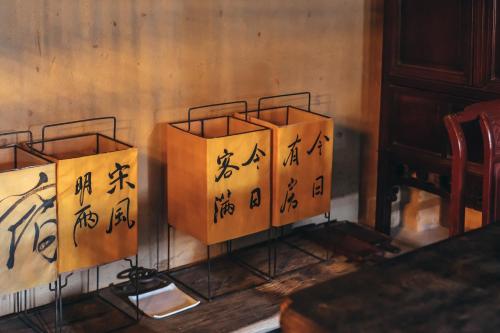 今日
有房
今日
客满
宋风
明雨